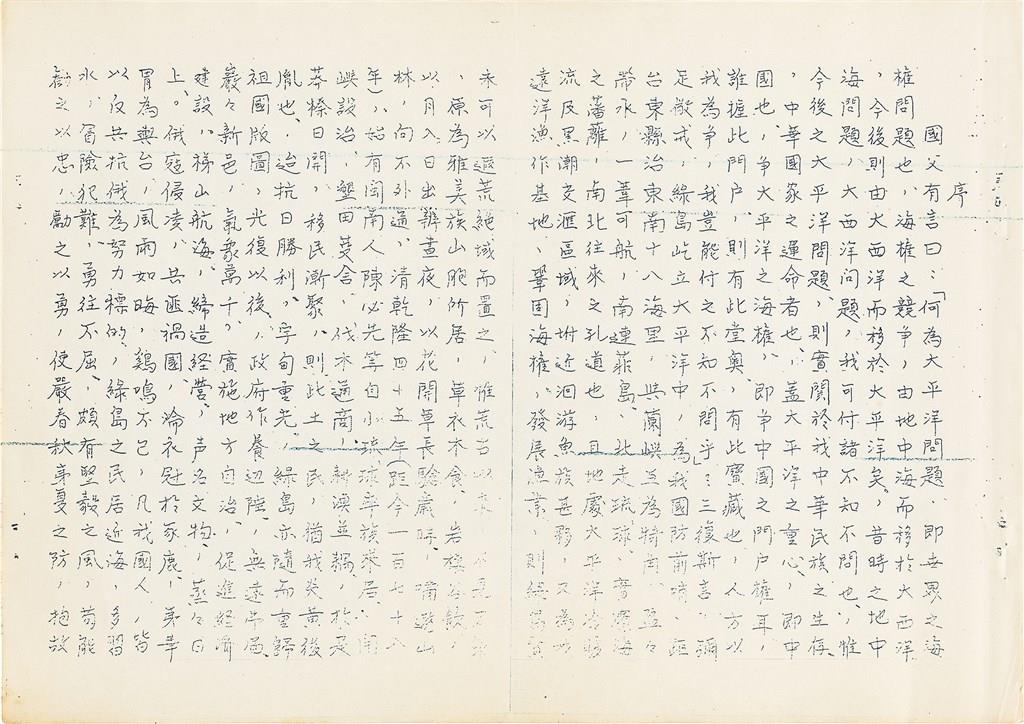 序
國父有言曰：「何為太平洋問題、即世界之海
權問題也、海權之競爭，由地中海而移於大西洋
，今後則由大西洋而移於太平洋矣。昔時之地中
海問題，大西洋问題，我可付諸不知不問也，惟
今後之大平洋問題、則實関於我中華民族之生存
，中華國家之運命者也、蓋大平洋之重心、即中
國也，爭大平洋之海權，即爭中國之門户權耳，
誰握此門户，則有此堂奧，有此寶藏也，人方以
我為爭，我豈能付之不知不問乎」：三復斯言，彌
足儆戒，綠島屹立大平洋中，為我國防前哨，距
台東縣治東南十八海里，與蘭嶼互為犄角，盈々
帶水，一葦可航，南連菲島、北走琉球、實
之藩離，南北往來之孔道也，且地處大平洋
流及黑潮交滙區域，坿近洄游魚族甚夥，又為
遠洋漁作基地、鞏固海權，發展漁業，則綠島
未可以遐荒絶域而置之，惟荒古以來，
，原為雅美族山胞所居，草衣木食，岩棲谷飲，
以月入日出辨晝夜，以花開草長驗歲時，
林，向不外通。清乾隆四十五年（距今一百七十八
年），始有闽南人陳必先等自小琉球率族
嶼設治，墾田芟舍，伐木通商，
莽榛日開，移民漸聚，則此土之民，猶我炎黃後
胤也，迨抗日勝利，字甸重光，綠島亦隨而重歸
祖國版圖，光復以後，政府作養边陲，無遠弗屆
巖々新邑，氣象萬千，實施地方自治，促進經濟
建設，梯山航海，締造経營，声名文物，蒸々日
上。俄寇侵凌，共匪禍國，淪衣冠於豕鹿，
胃為輿台，風雨如晦，鷄鳴不已，凡我國人，皆
以反共抗俄為努力標的，綠島之民居近海，多習
水，冒險犯難，勇往不屈、頗有堅毅之風，苟能
勸之以忠，勵之以勇，使嚴春秋夷夏之防，抱故